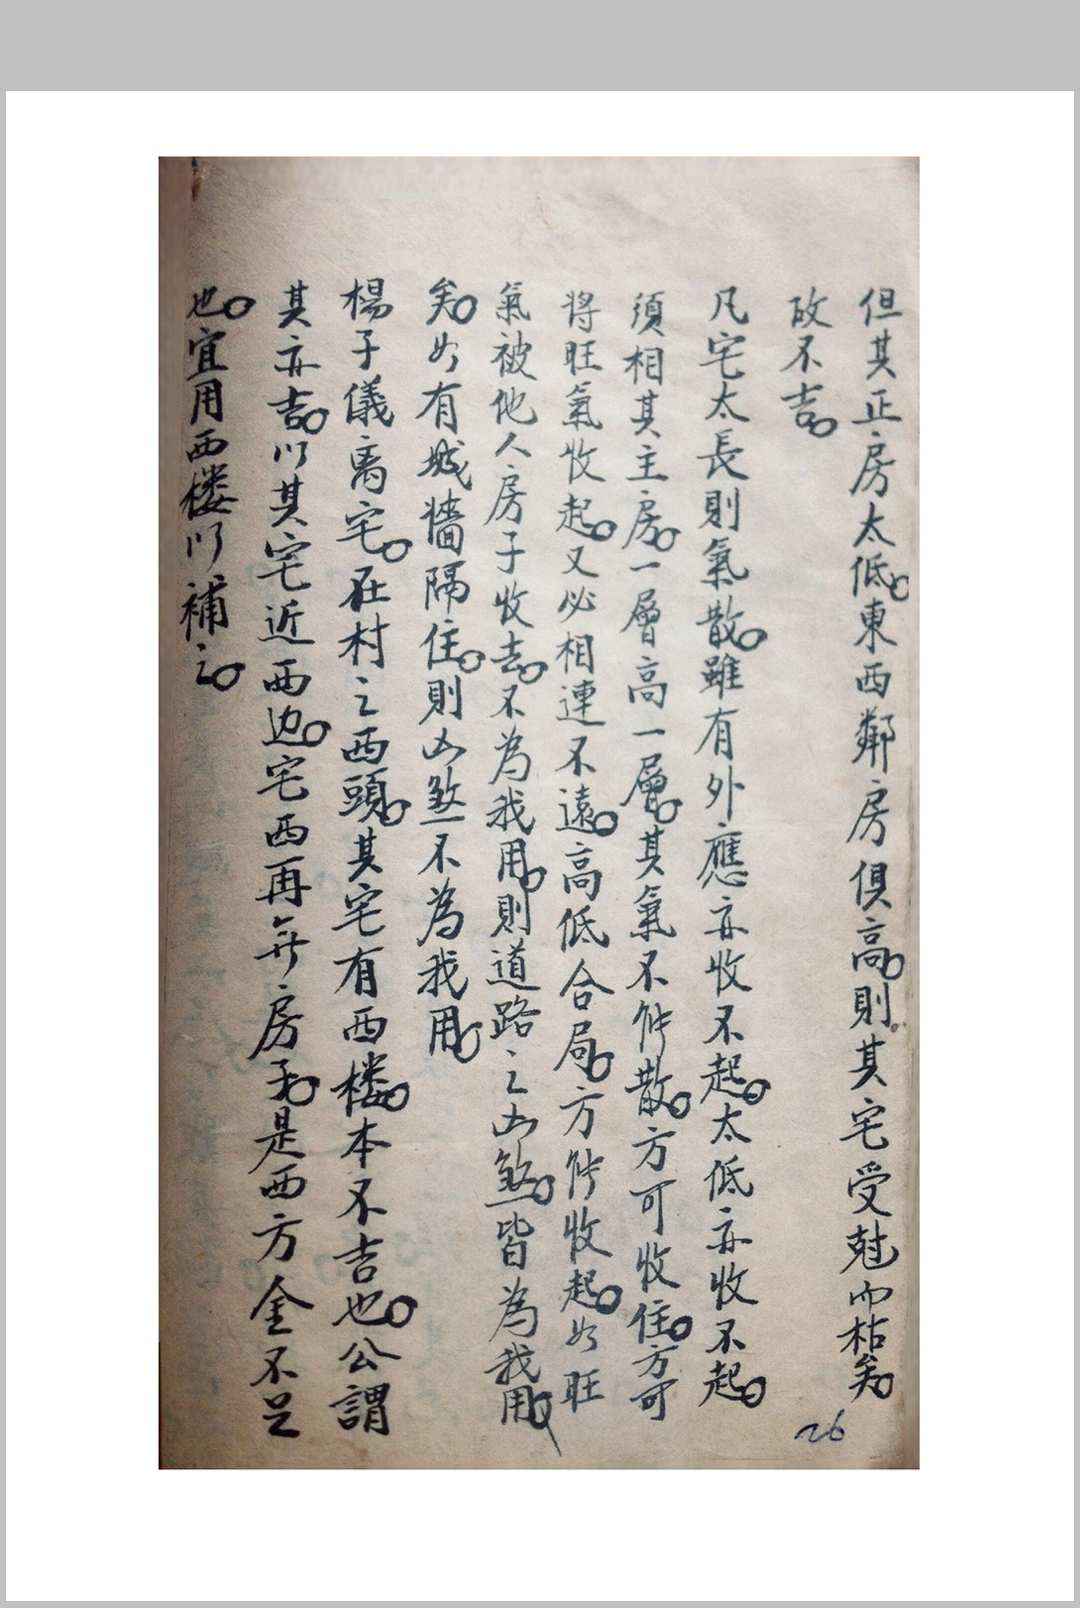 但其正房太低。東西鄰房俱高。則其宅受尅而枯矣。
故不吉。
凡宅太長則氣散。雖有外應亦收不起。太低亦收不起。
須相其主房。一層高一層。其氣不能散。方可收住。方可
将旺氣收起。又必相連不遠。高低合局。方能收起。如旺
氣被他人房子收去。不為我用。則道路之凶煞。皆為我用。
矣。如有城牆隔住。則凶煞不為我用。
楊子儀离宅。在村之西頭。其宅有西楼。本不吉也。公謂
其亦吉。以其宅近西边。宅西再無房子。是西方金不足
也。宜用西楼以補之。
26